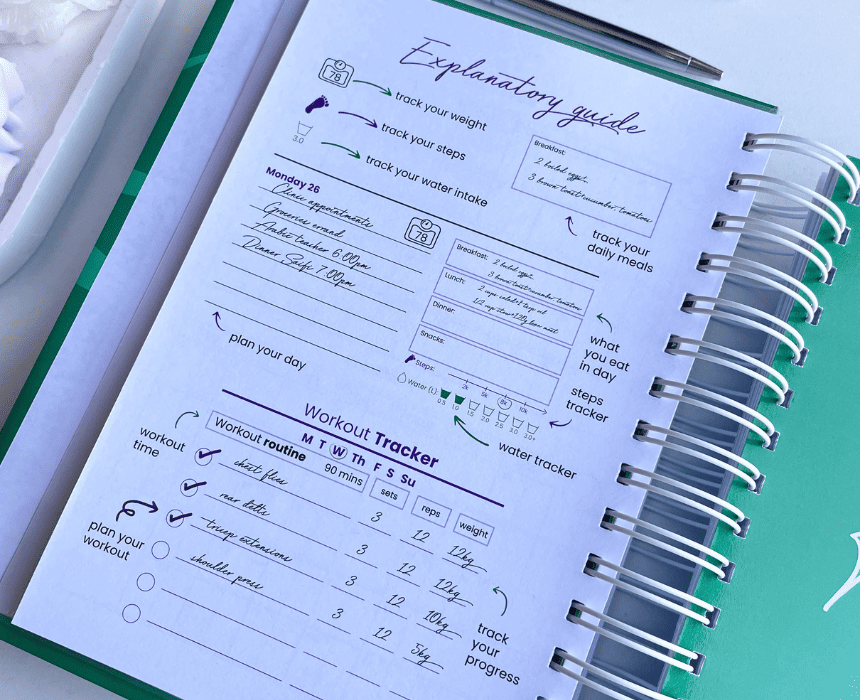 Explanatory guide
78
track your weight
track your steps
3.0
track your water intake
Breakfast:
2 boiled eggs,
3 brown toast+cucumber+tomatoes
track your
daily meals
Monday 26
Clinic appointments
Groceries errand
Arabic teacher 6:00pm
Dinner Saifi 7:00pm
78
Breakfast: 2 boiled eggs,
3 brown toast+cucumber+tomatoes
Lunch:
Dinner:
Snacks:
Steps:
2k 5k 8k 10k
Water (L):
0.5 1.0 1.5 2.0 2.5 3.0 3.0+
plan your day
what
you eat
in day
steps
tracker
water tracker
Workout Tracker
M T W Th F S Su
workout
time
Workout routine 90 mins
sets
reps
weight
chest flies 3 12 12kg
rear delts 3 12 12kg
tricep extensions 3 12 10kg
shoulder press 3 12 5kg
plan your
workout
track
your
progress